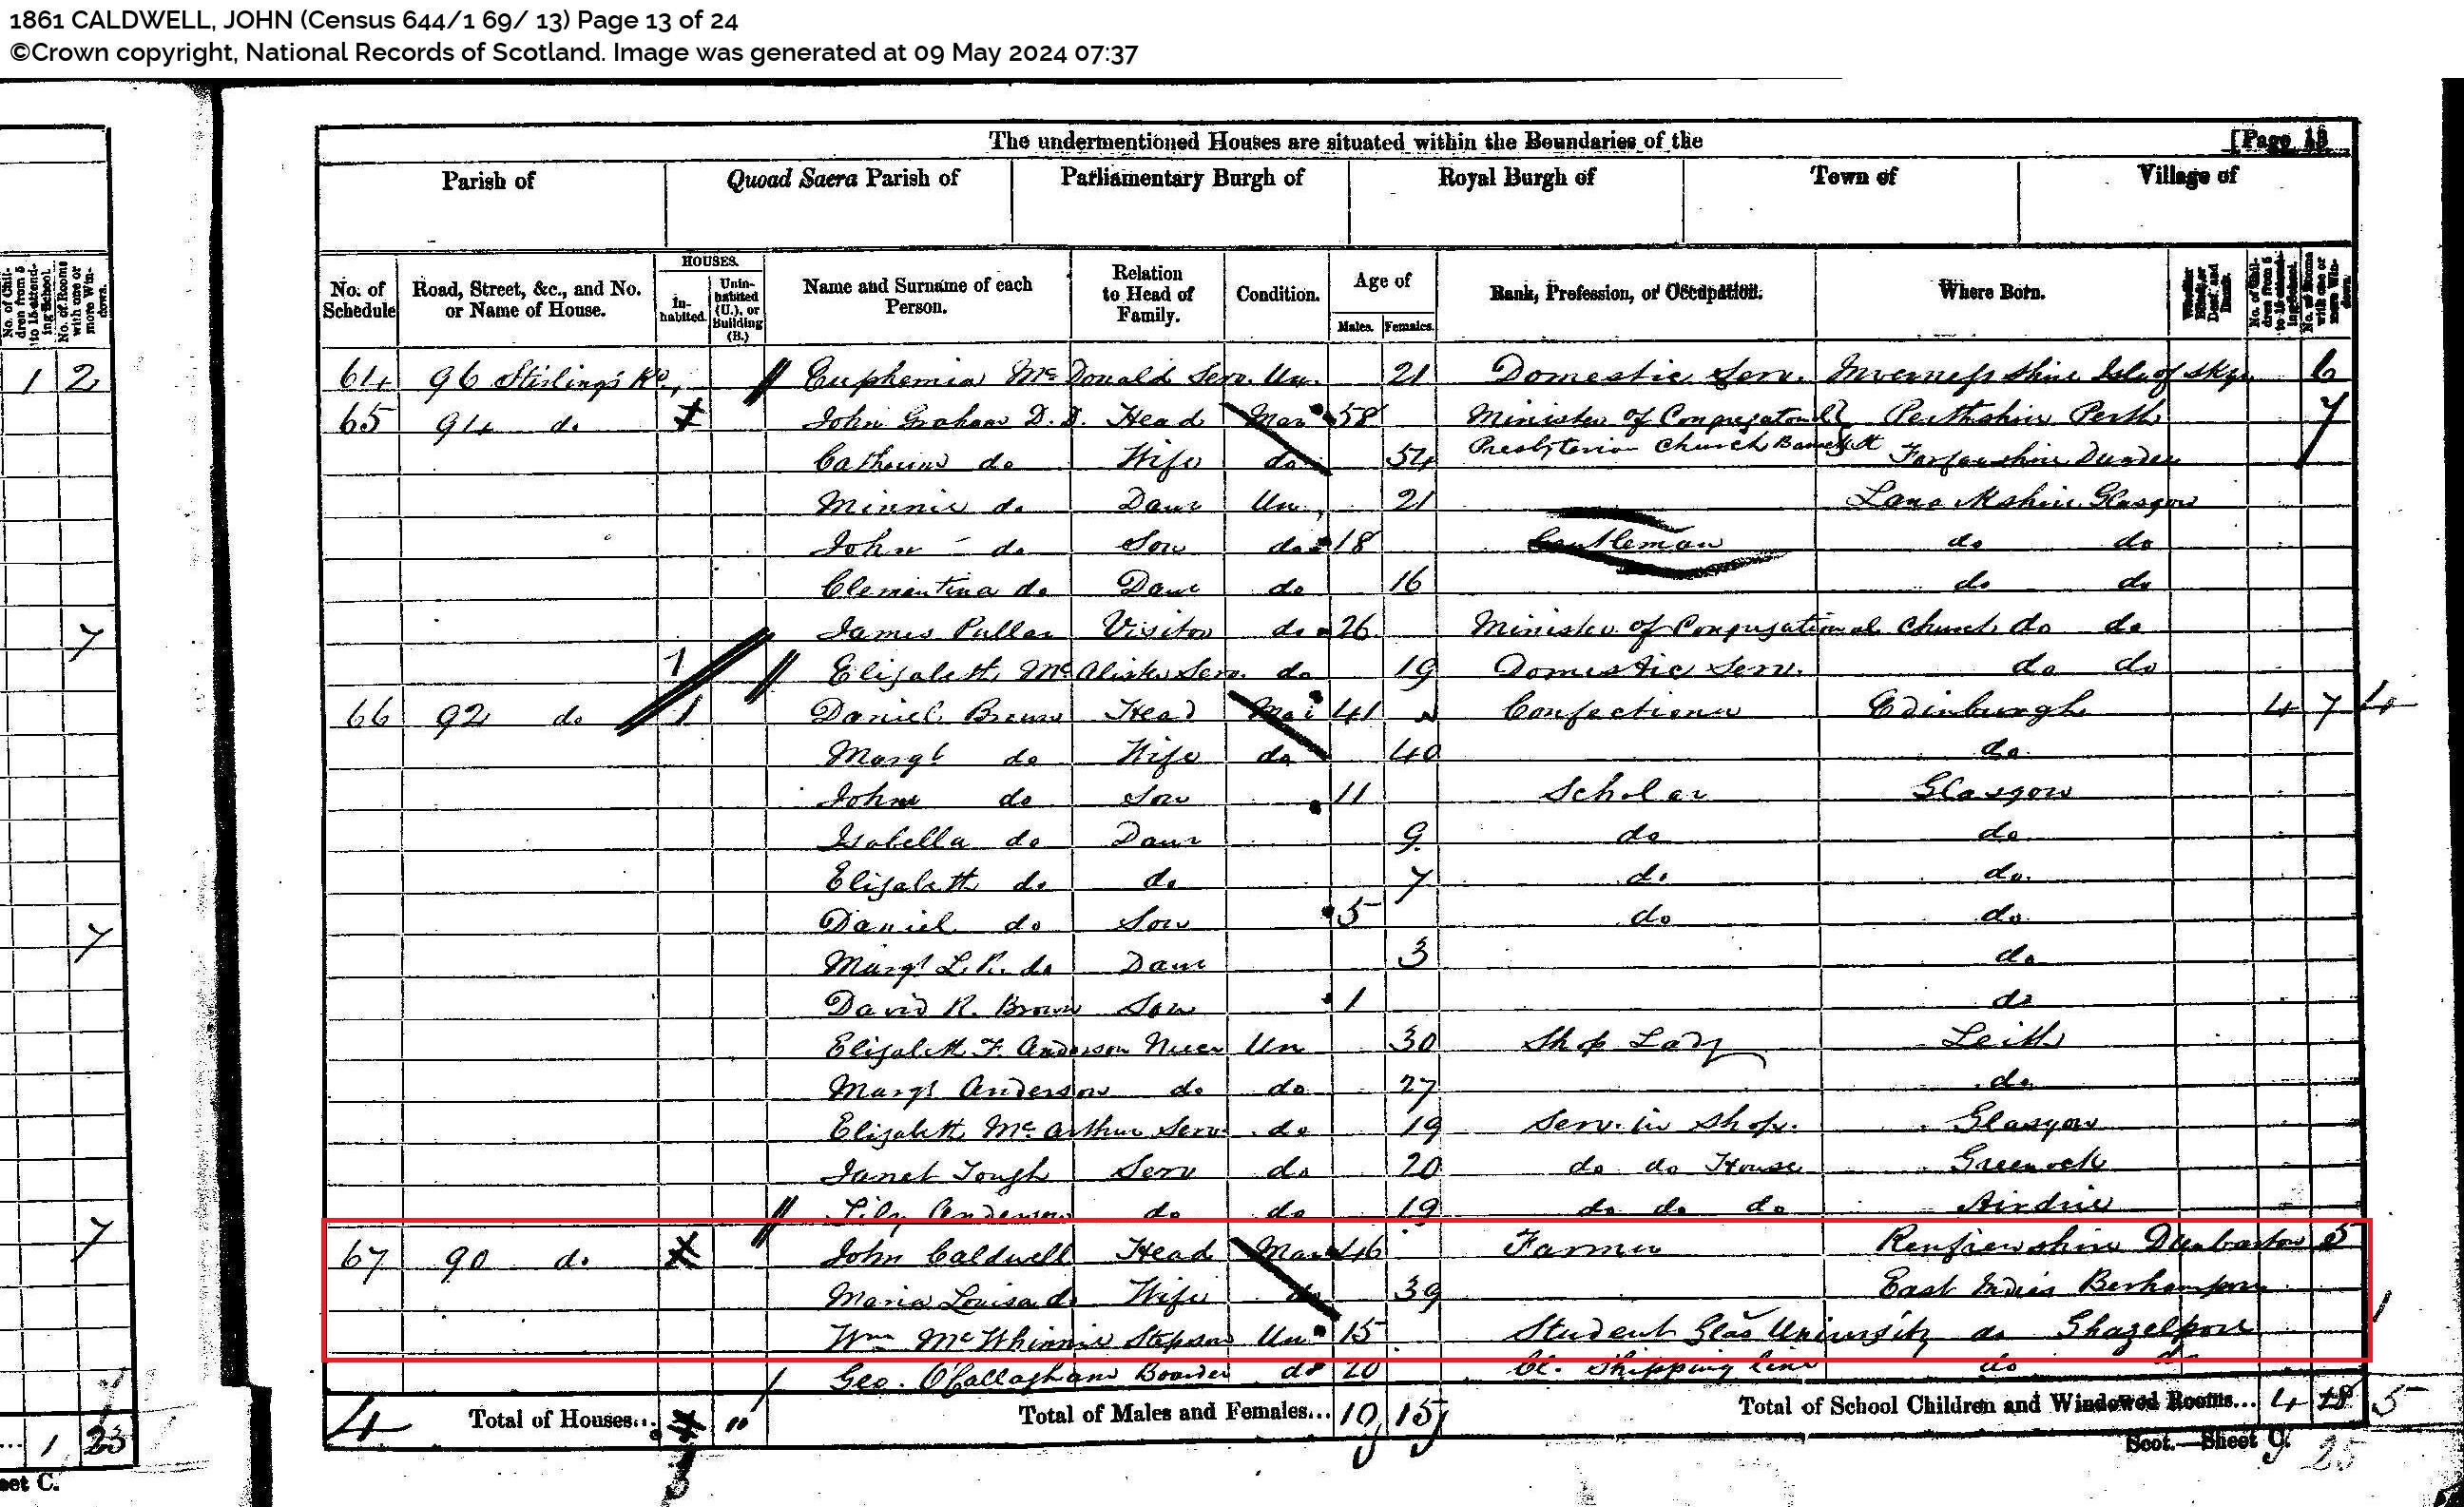 1861 CALDWELL, JOHN (Census 644/1 69/ 13) Page 13 of 24
©Crown copyright, National Records of Scotland. Image was generated at 09 May 2024 07:37
The undermentioned Houses are situated within the Boundaries of the [Page 13
Parish of Quoad Sacra Parish of Parliamentary Burgh of Royal Burgh of Town of Village of
No. of Schedule Road, Street, &c., and No. or Name of House. HOUSES. Inhabited. Uninhabited (U.), or Building (B.) Name and Surname of each Person. Relation to Head of Family. Condition. Age of Males. Females. Rank, Profession, or Occupation. Where Born. Whether Blind, or Deaf and Dumb. No. of Children from 5 to 15 attending School. No. of Rooms with one or more Windows.
1 2 64 96 Stirling's Rd, Euphemia McDonald Serv. Un. 21 Domestic Serv. Inverness shire Isle of Skye 6
65 94 do John Graham D.D. Head Mar 58 Minister of Congregational Perthshire Perth 7
Catherine do Wife do 54 Presbyterian Church Forfarshire Dundee
Minnie do Daur Un 21 Lanarkshire Glasgow
John do Son do 18 Gentleman do do
Clementina do Daur do 16 do do
7 James Pullar Visitor do 26 Minister of Congregational Church do do
1 Elizabeth McAlister Serv. do 19 Domestic Serv. do do
66 92 do 1 Daniel Brown Head Mar 41 Confectioner Edinburgh 4 7 4
Margt do Wife do 40 do
John do Son 11 Scholar Glasgow
Isabella do Daur 9 do do
Elizabeth do do 7 do do
7 Daniel do Son 5 do do
Margt L. R. do Daur 3 do
David R. Brown Son 1 do
Elizabeth F. Anderson Niece Un 30 Shop Lady Leith
Margt Anderson do do 27 do
Elizabeth McArthur Serv do 19 Serv. in Shop. Glasgow
Janet Tough Serv do 20 do do House Greenock
Lily Anderson do do 19 do do do Airdrie
7 67 90 do John Caldwell Head Mar 46 Farmer Renfrewshire Dunbarton 5
Maria Louisa do Wife do 39 East Indies Berhampore
Wm McWhinnie Stepson Un 15 Student Glas University do Ghazelpore 1
Geo. O'Callaghan Boarder do 20 Cl. Shipping line do do
4 Total of Houses... Total of Males and Females... 10 15 Total of School Children and Windowed Rooms... 4 18 5
1 23 Scot.—Sheet C. 25
eet C.